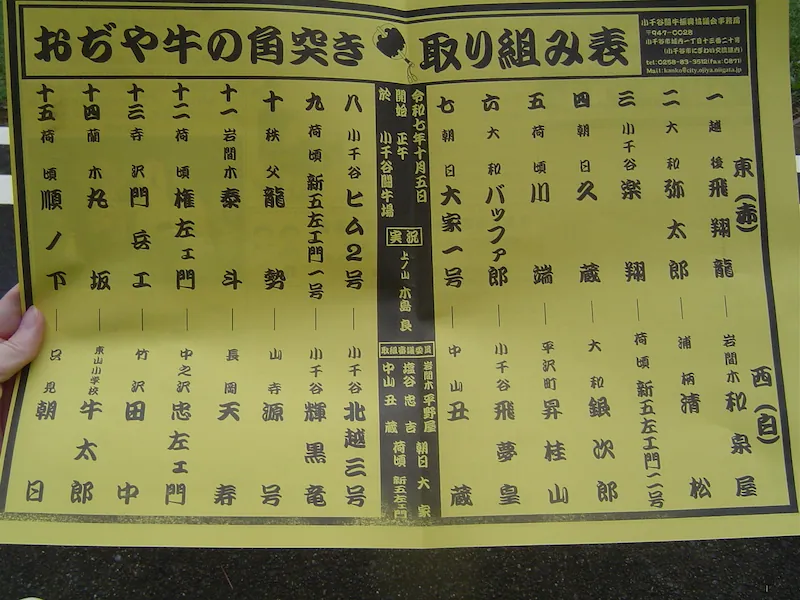 おぢや牛の角突き 取り組み表
小千谷闘牛振興協議会事務局
〒947-0028
小千谷市城内一丁目十三番二十号
(小千谷市にぎわい交流課内)
tel:0258-83-3512(fax:0871)
Mail:kanko@city.ojiya.niigata.jp
東(赤)
西(白)
一 越後 飛翔龍 ― 岩間木 和泉屋
二 大和 弥太郎 ― 浦柄 清松
三 小千谷 楽翔 ― 荷頃 新五左エ門二号
四 朝日 久蔵 ― 大和 銀次郎
五 荷頃 川端 ― 平沢町 昇桂山
六 大和 バッファ郎 ― 小千谷 飛夢皇
七 朝日 大家一号 ― 中山 丑蔵
令和七年十月五日
開始 正午
於 小千谷闘牛場
実況
上ノ山 木島良
取組審議委員
岩間木 平野屋 朝日 大家
塩谷 忠吉 荷頃 新五左エ門
中山 丑蔵
八 小千谷 ヒム2号 ― 小千谷 北越三号
九 荷頃 新五左エ門一号 ― 小千谷 輝黒竜
十 秩父 龍勢 ― 山寺 源号
十一 岩間木 泰斗 ― 長岡 天寿
十二 荷頃 権左エ門 ― 中之沢 忠左エ門
十三 寺沢 門兵工 ― 竹沢 田中
十四 蘭木 丸坂 ― 東山小学校 牛太郎
十五 荷頃 順ノ下 ― 只見 朝日